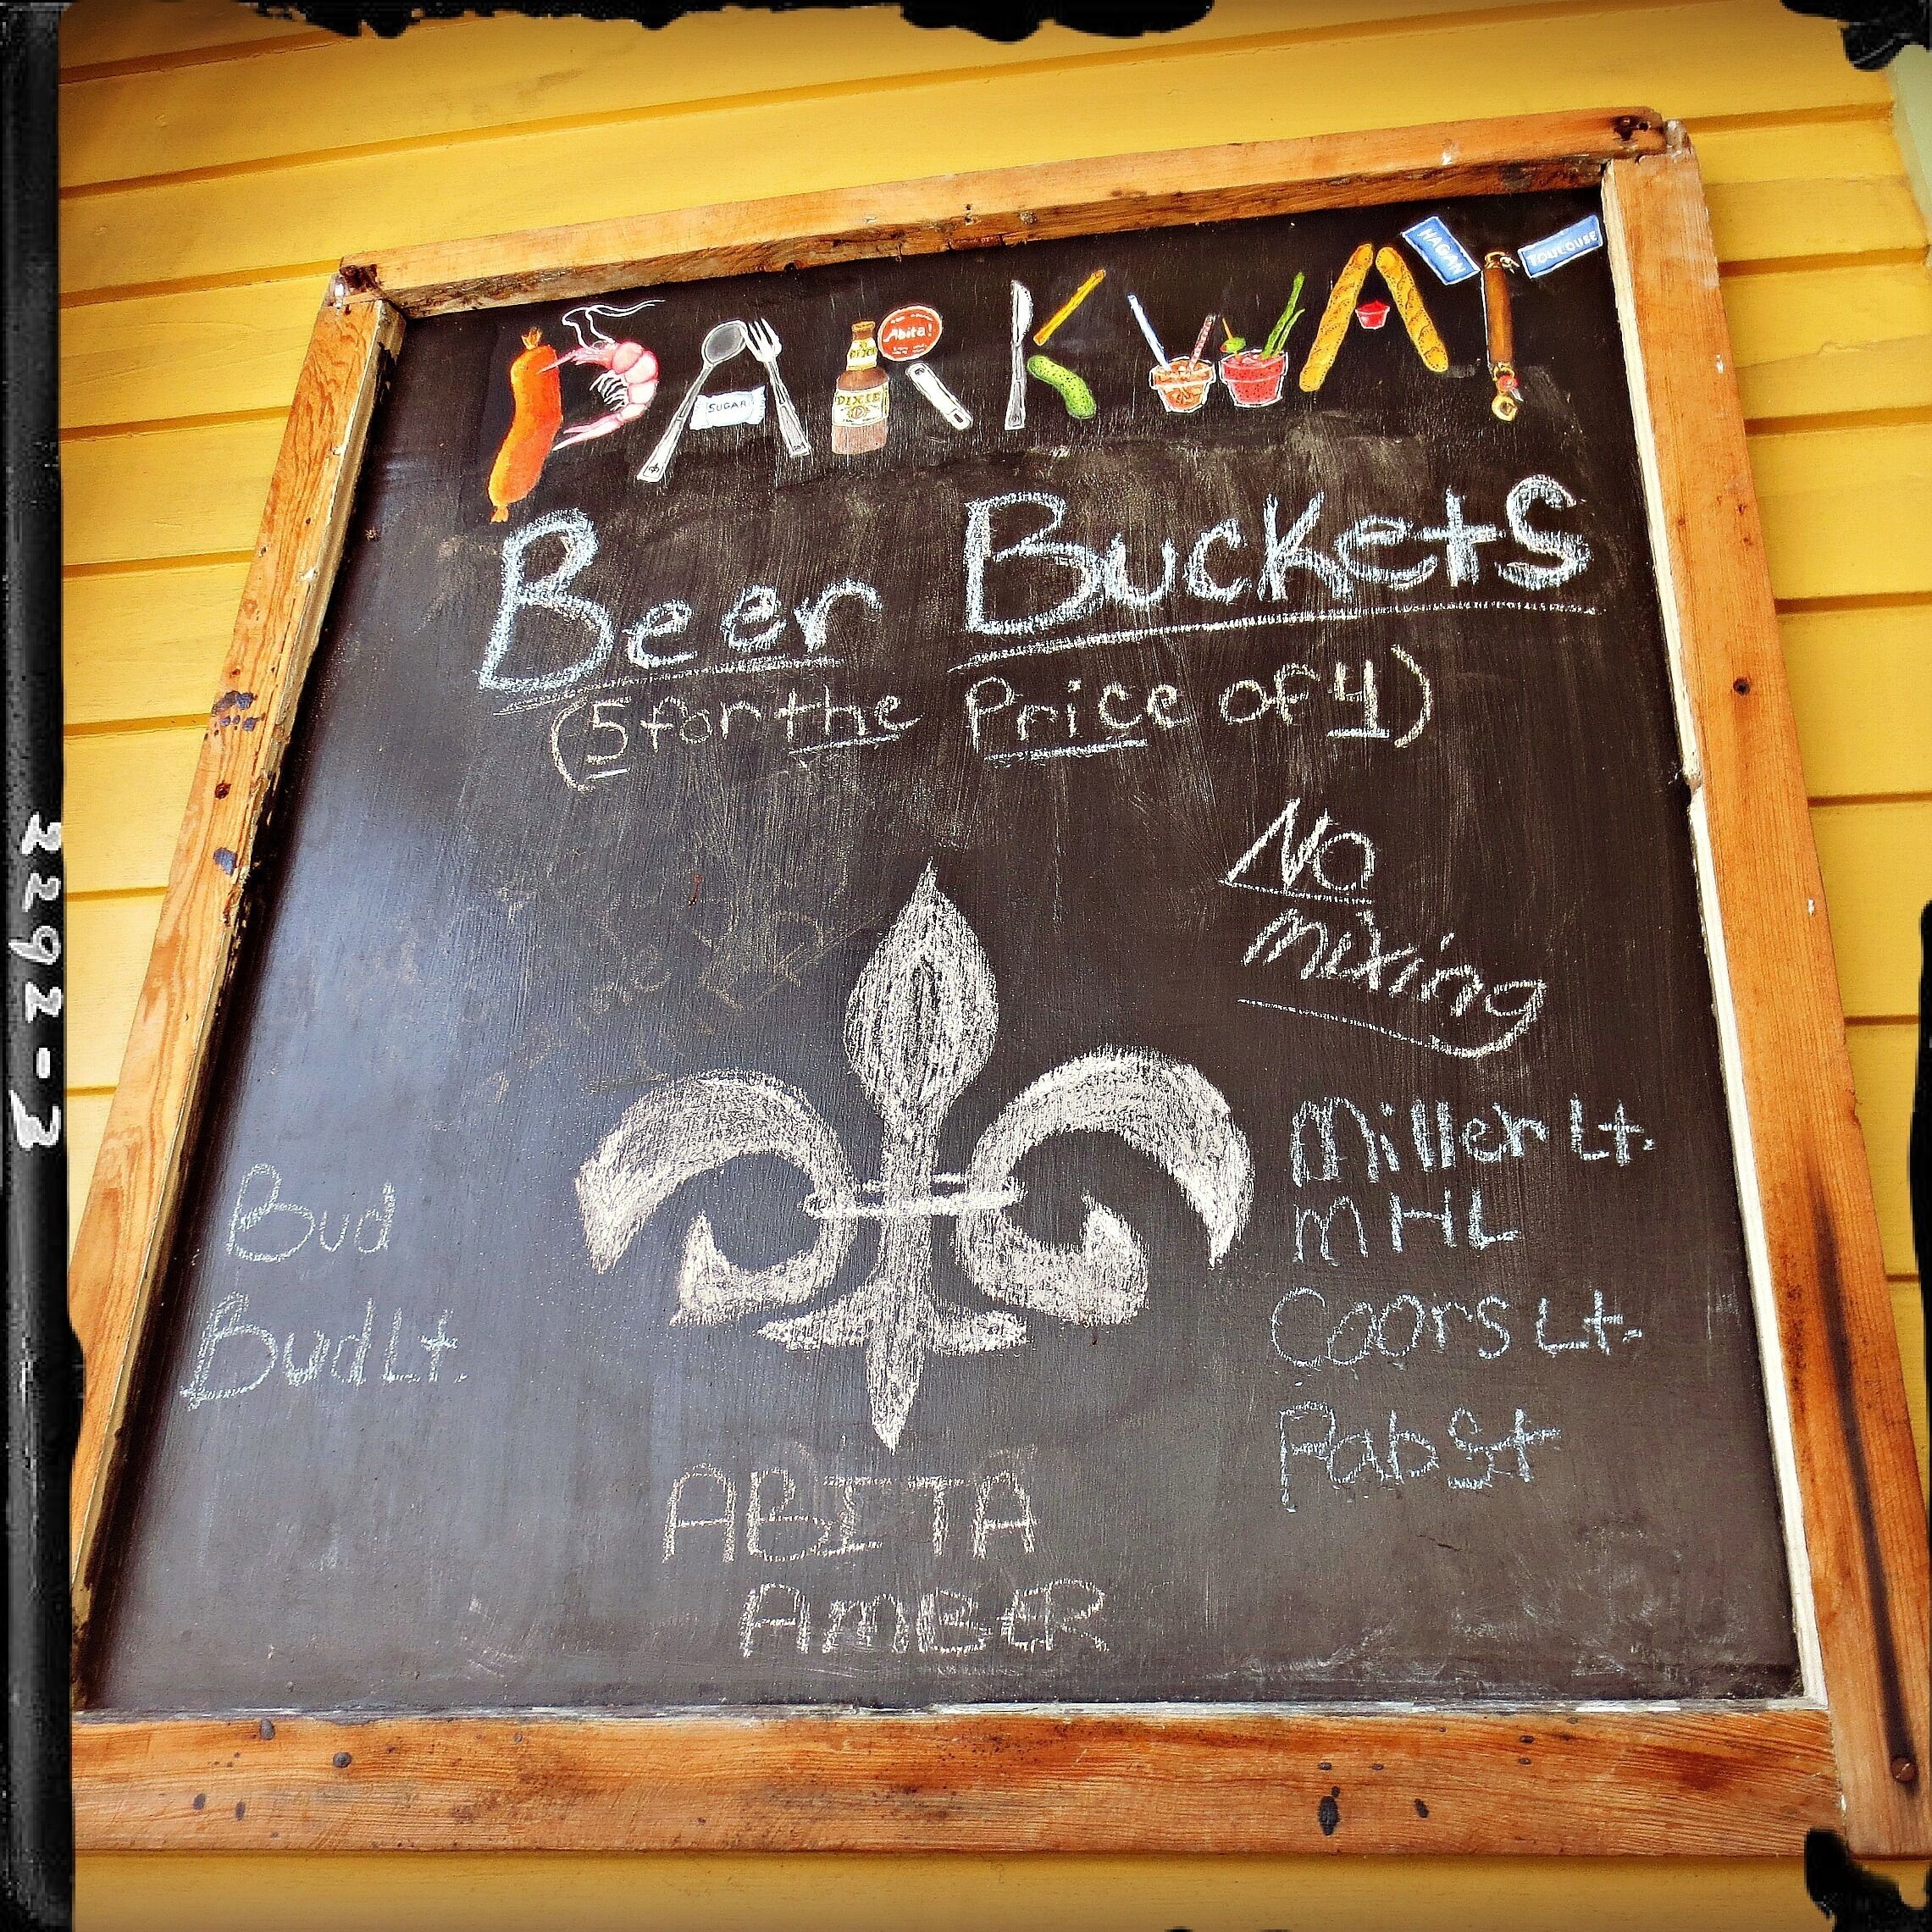 PARKWAY
HAGAN
TOULOUSE
SUGAR
DIXIE
Abita!
Beer Buckets
(5 for the Price of 4)
No
mixing
Miller Lt.
MHL
Coors Lt.
Pabst
Bud
Bud Lt.
ABITA
AMBER
2292-3